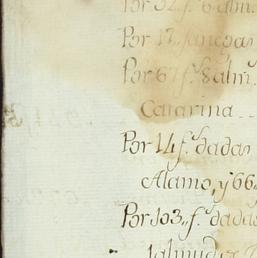 Por 32 f.s 6 alm.
Por 17 fanegas
Por 67 f.s 8 alm.
Catarina
Por 14 f.s dadas
Alamo, y 66
Por 103 f.s dadas